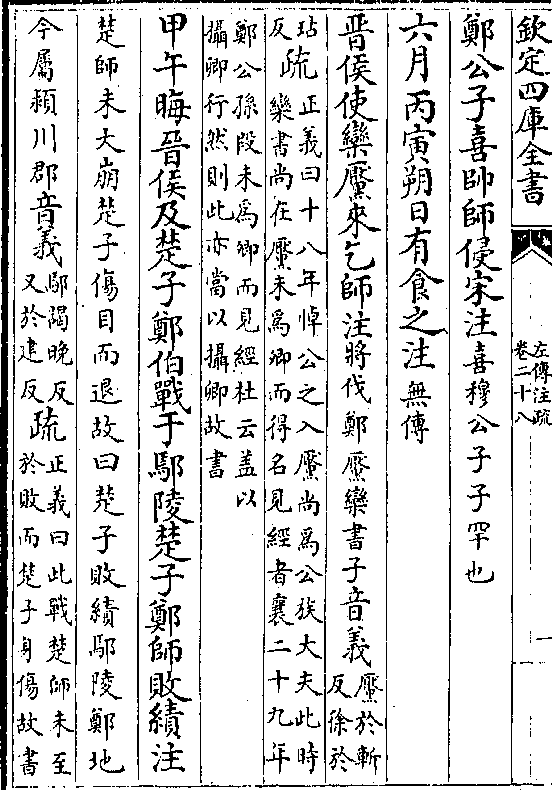 欽定四庫全書
左傳注疏
卷二十八
一
鄭公子喜帥師侵宋注喜穆公子子罕也
六月丙寅朔日有食之注無傳
晉侯使欒黶來乞師注將伐鄭黶欒書子音義黶於斬
反徐於
玷
反疏正義曰十八年悼公之入黶尚為公族大夫此時
欒書尚在黶未為卿而得名見經者襄二十九年
鄭公孫段未為卿而見經杜云盖以
攝卿行然則此亦當以攝卿故書
甲午晦晉侯及楚子鄭伯戰于鄢陵楚子鄭師敗績注
楚師未大崩楚子傷目而退故曰楚子敗績鄢陵鄭地
今屬潁川郡音義鄢隝晚反
又於建反疏正義曰此戰楚師未至
於敗而楚子身傷故書